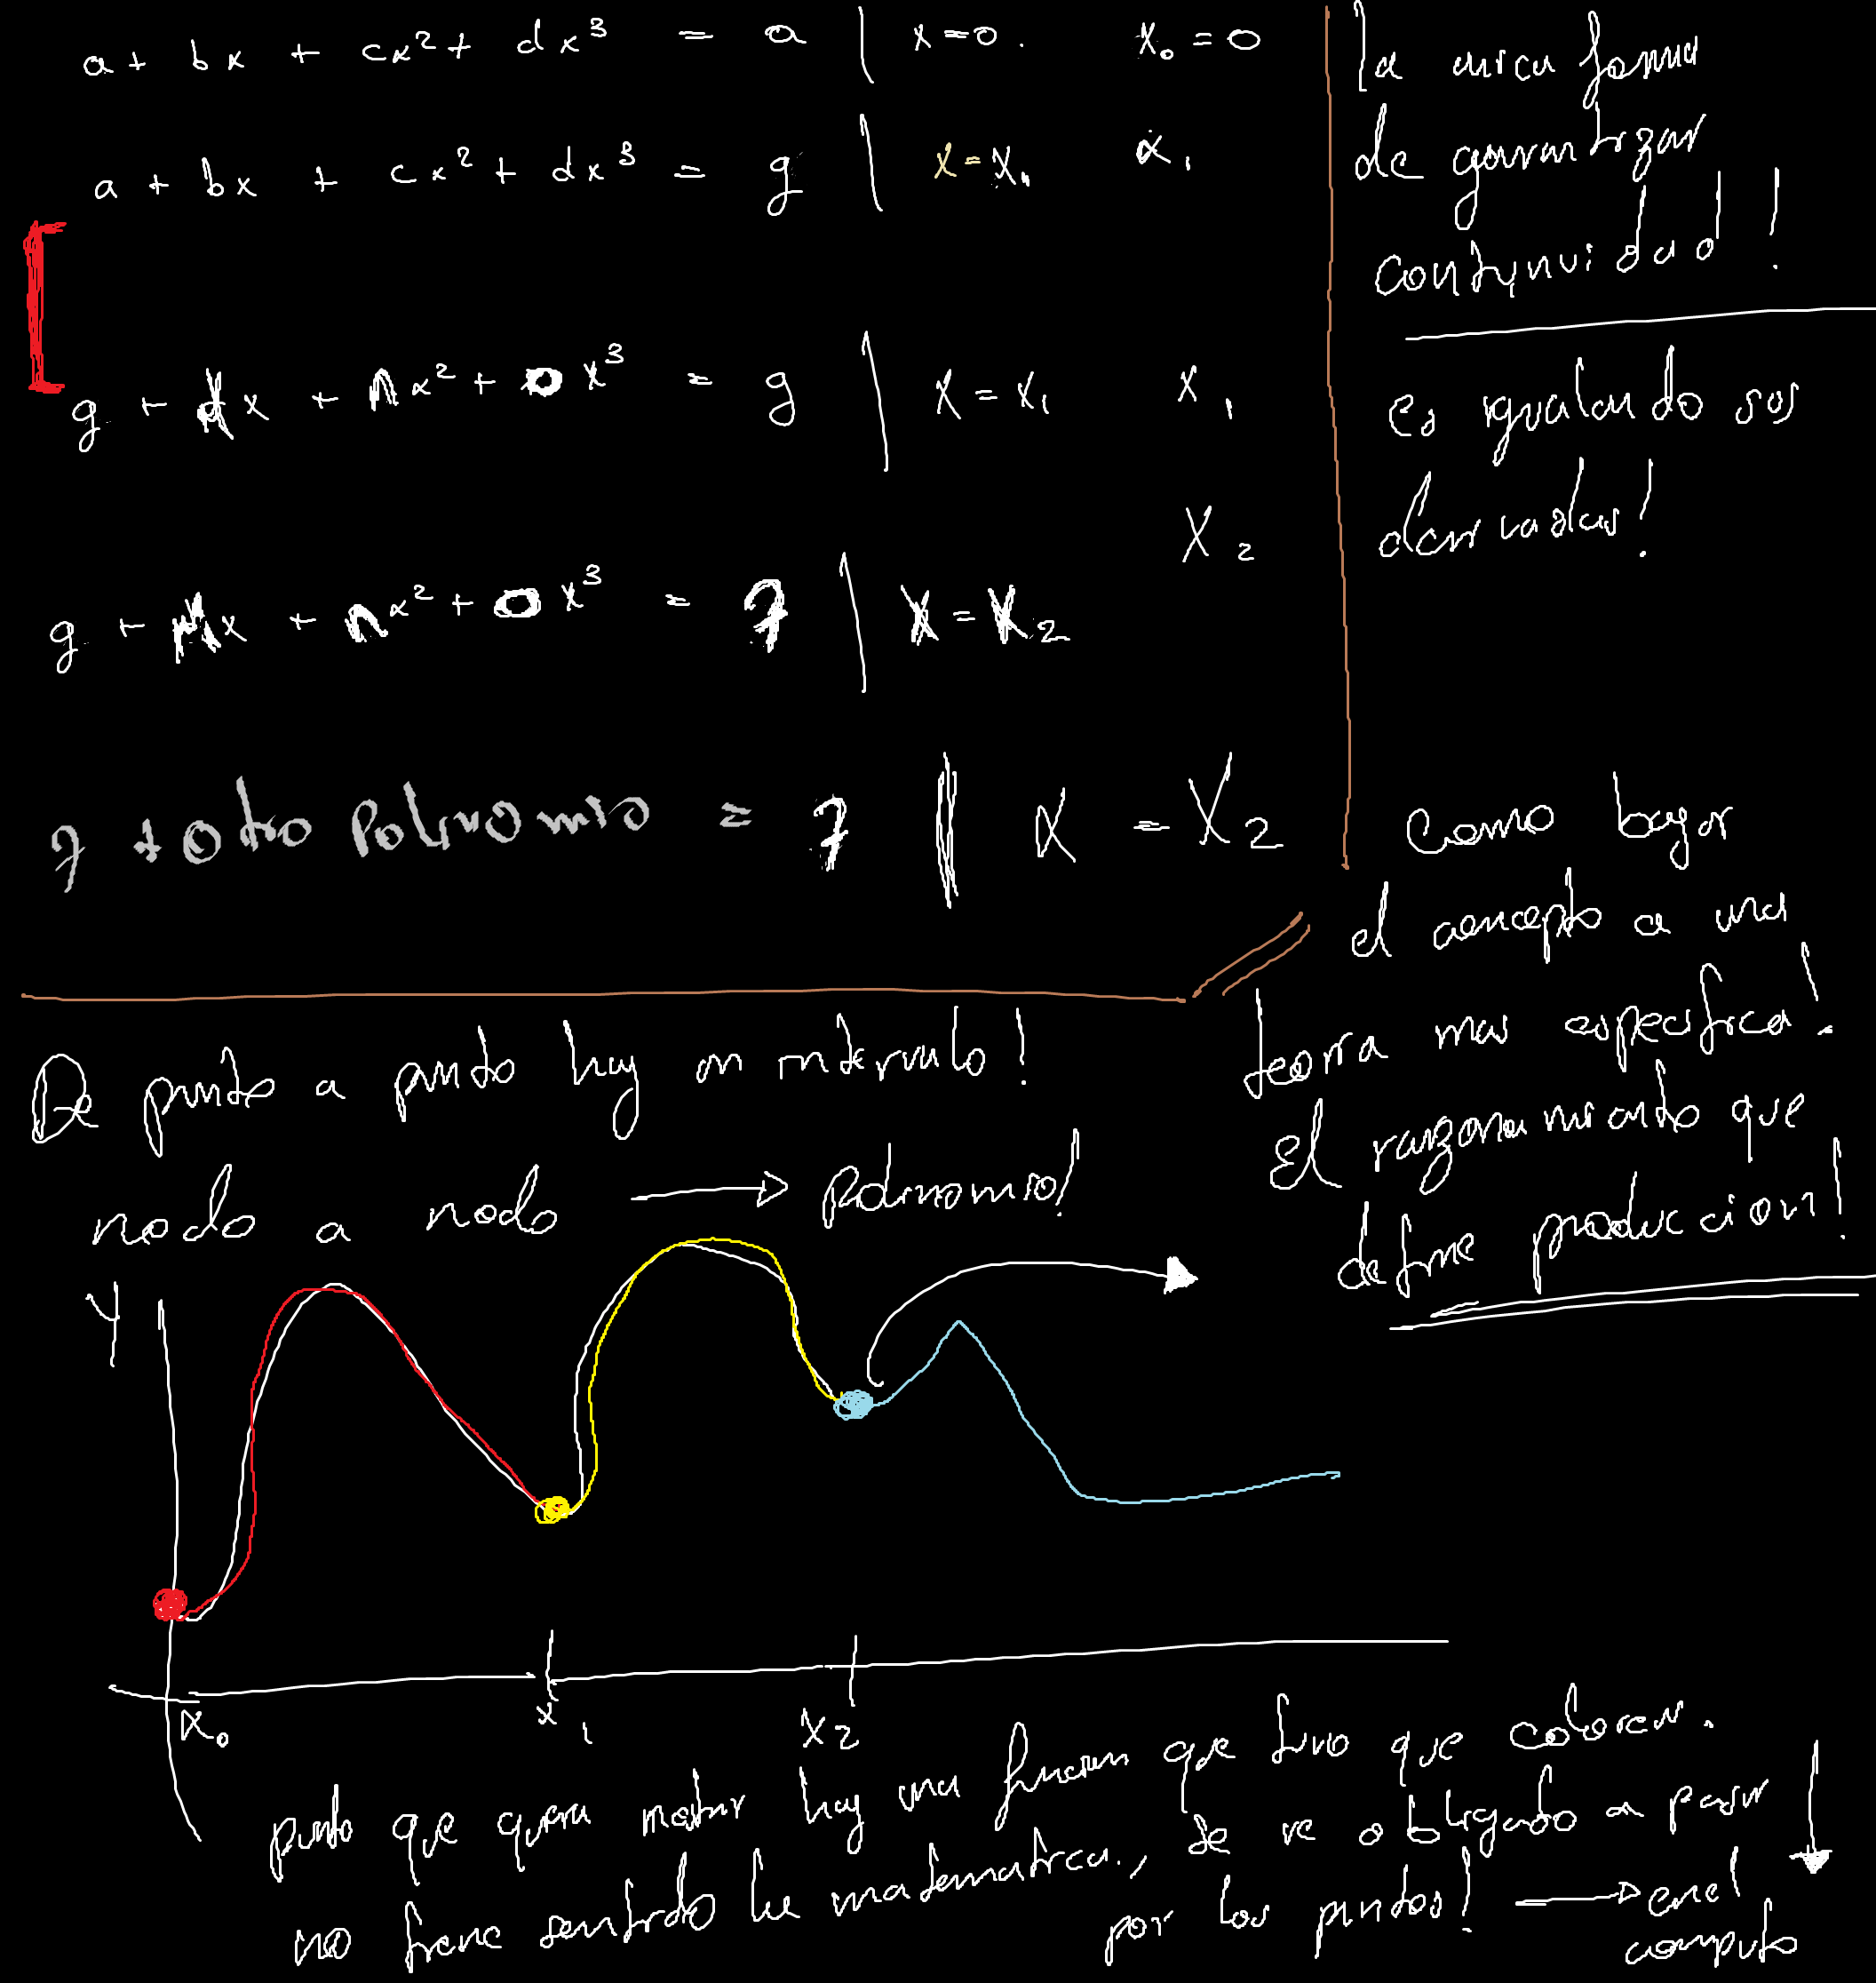 a + bx + cx² + dx³ = a | x=0. x₀ = 0
a + bx + cx² + dx³ = g | x=x₁ x₁
g + Mx + nx² + ox³ = g | x = x₁ x₁
x₂
g + Mx + nx² + ox³ = 7 | x = x₂
7 + otro polinomio = 7 || x = x₂
la unica forma
de garantizar
continuidad!
es igualando sus
derivadas!
como bajar
el concepto a una
teoria mas especifica!
El razonamiento que
define produccion!
De punto a punto hay un intervalo!
nodo a nodo → polinomio!
Y
x₀ x₁ x₂
punto que quiera meter hay una funcion que tuvo que colocar.
no tiene sentido la matematica., se ve obligado a pasar
por los puntos! → en el
computo